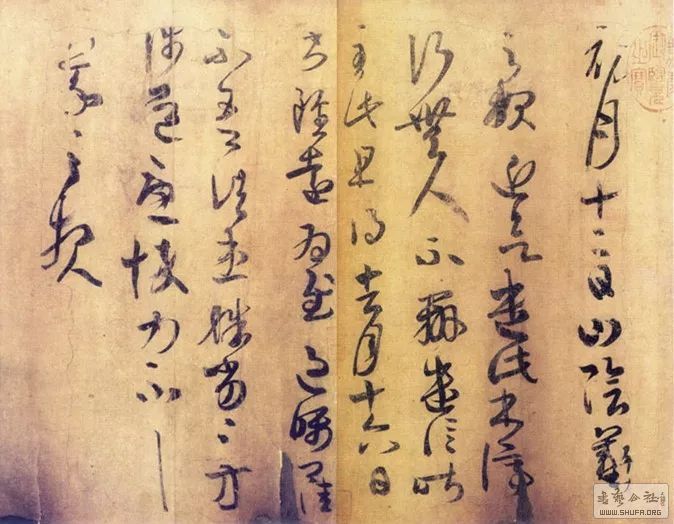 初月十二日山陰羲
之報近欲遣此書停
行無人不辦遣信昨
至此且得去月十六日
書雖遠為慰過囑卿佳
不吾諸患殊劣〻方
涉道憂悴力不
羲之報
書藝公社
WWW.SHUFA.ORG